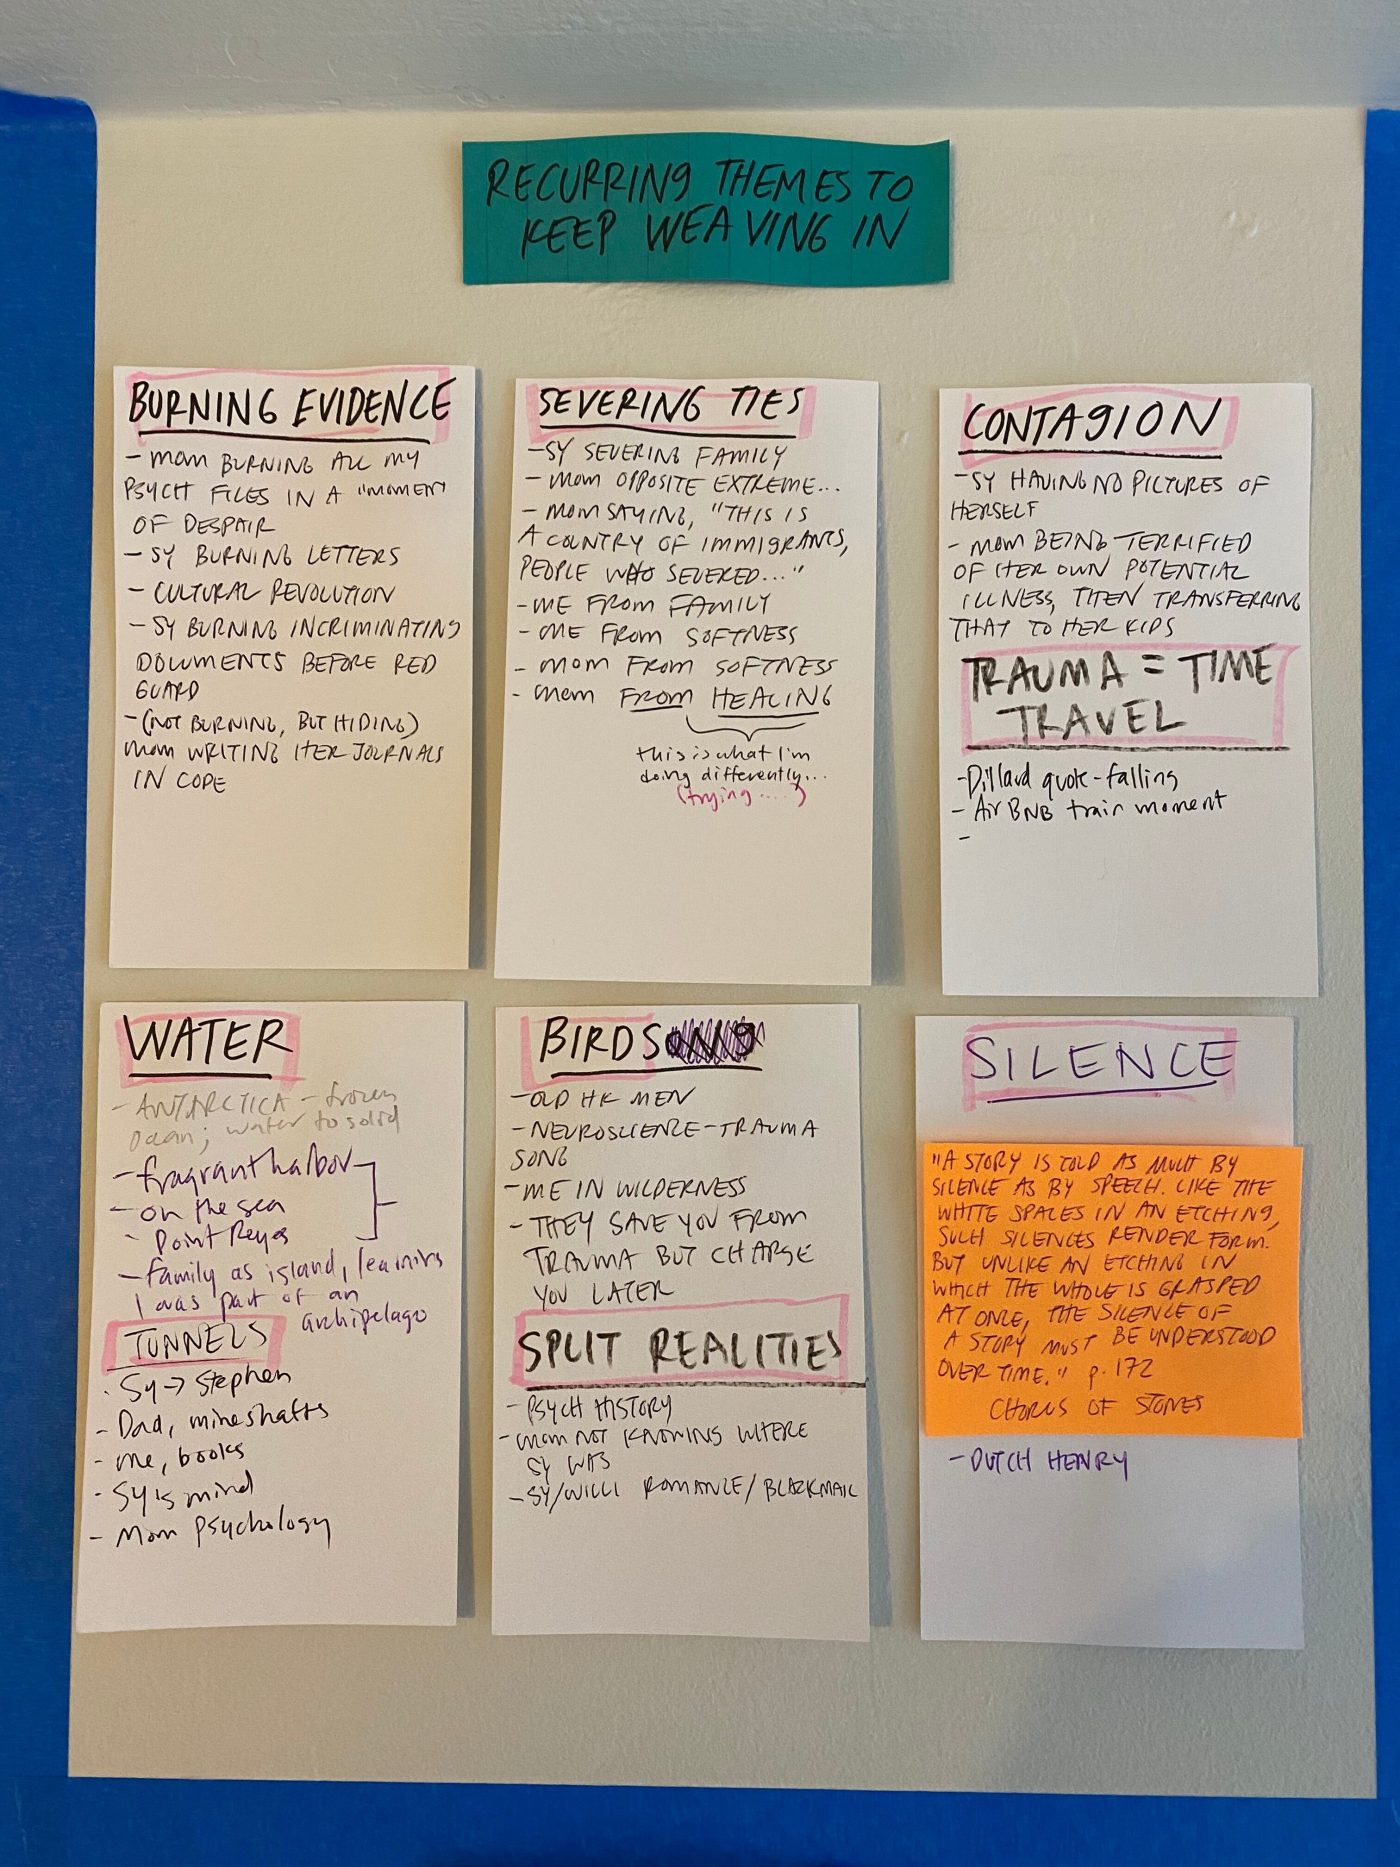 RECURRING THEMES TO
KEEP WEAVING IN
BURNING EVIDENCE
- MOM BURNING ALL MY
PSYCH FILES IN A "MOMENT
OF DESPAIR
- SY BURNING LETTERS
- CULTURAL REVOLUTION
- SY BURNING INCRIMINATING
DOCUMENTS BEFORE RED
GUARD
- (NOT BURNING, BUT HIDING)
MOM WRITING HER JOURNALS
IN CODE
SEVERING TIES
- SY SEVERING FAMILY
- MOM OPPOSITE EXTREME...
- MOM SAYING, "THIS IS
A COUNTRY OF IMMIGRANTS,
PEOPLE WHO SEVERED..."
- ME FROM FAMILY
- ME FROM SOFTNESS
- MOM FROM SOFTNESS
- MOM FROM HEALING
this is what I'm
doing differently...
(trying ....)
CONTAGION
- SY HAVING NO PICTURES OF
HERSELF
- MOM BEING TERRIFIED
OF HER OWN POTENTIAL
ILLNESS, THEN TRANSFERRING
THAT TO HER KIDS
TRAUMA = TIME
TRAVEL
- Dillard quote - falling
- AirBNB train moment
-
WATER
- ANTARCTICA - frozen
ocean; water to solid
- fragrant harbor
- on the sea
- Point Reyes
- family as island, learning
I was part of an
archipelago
TUNNELS
- Sy → Stephen
- Dad, mineshafts
- me, books
- Sy's mind
- Mom psychology
BIRDS
- OLD HK MEN
- NEUROSCIENCE - TRAUMA
SONG
- ME IN WILDERNESS
- THEY SAVE YOU FROM
TRAUMA BUT CHARGE
YOU LATER
SPLIT REALITIES
- PSYCH HISTORY
- MOM NOT KNOWING WHERE
SY WAS
- SY/WILLI ROMANCE/BLACKMAIL
SILENCE
"A STORY IS TOLD AS MUCH BY
SILENCE AS BY SPEECH. LIKE THE
WHITE SPACES IN AN ETCHING,
SUCH SILENCES RENDER FORM.
BUT UNLIKE AN ETCHING IN
WHICH THE WHOLE IS GRASPED
AT ONCE, THE SILENCE OF
A STORY MUST BE UNDERSTOOD
OVER TIME." p. 172
CHORUS OF STONES
- DUTCH HENRY